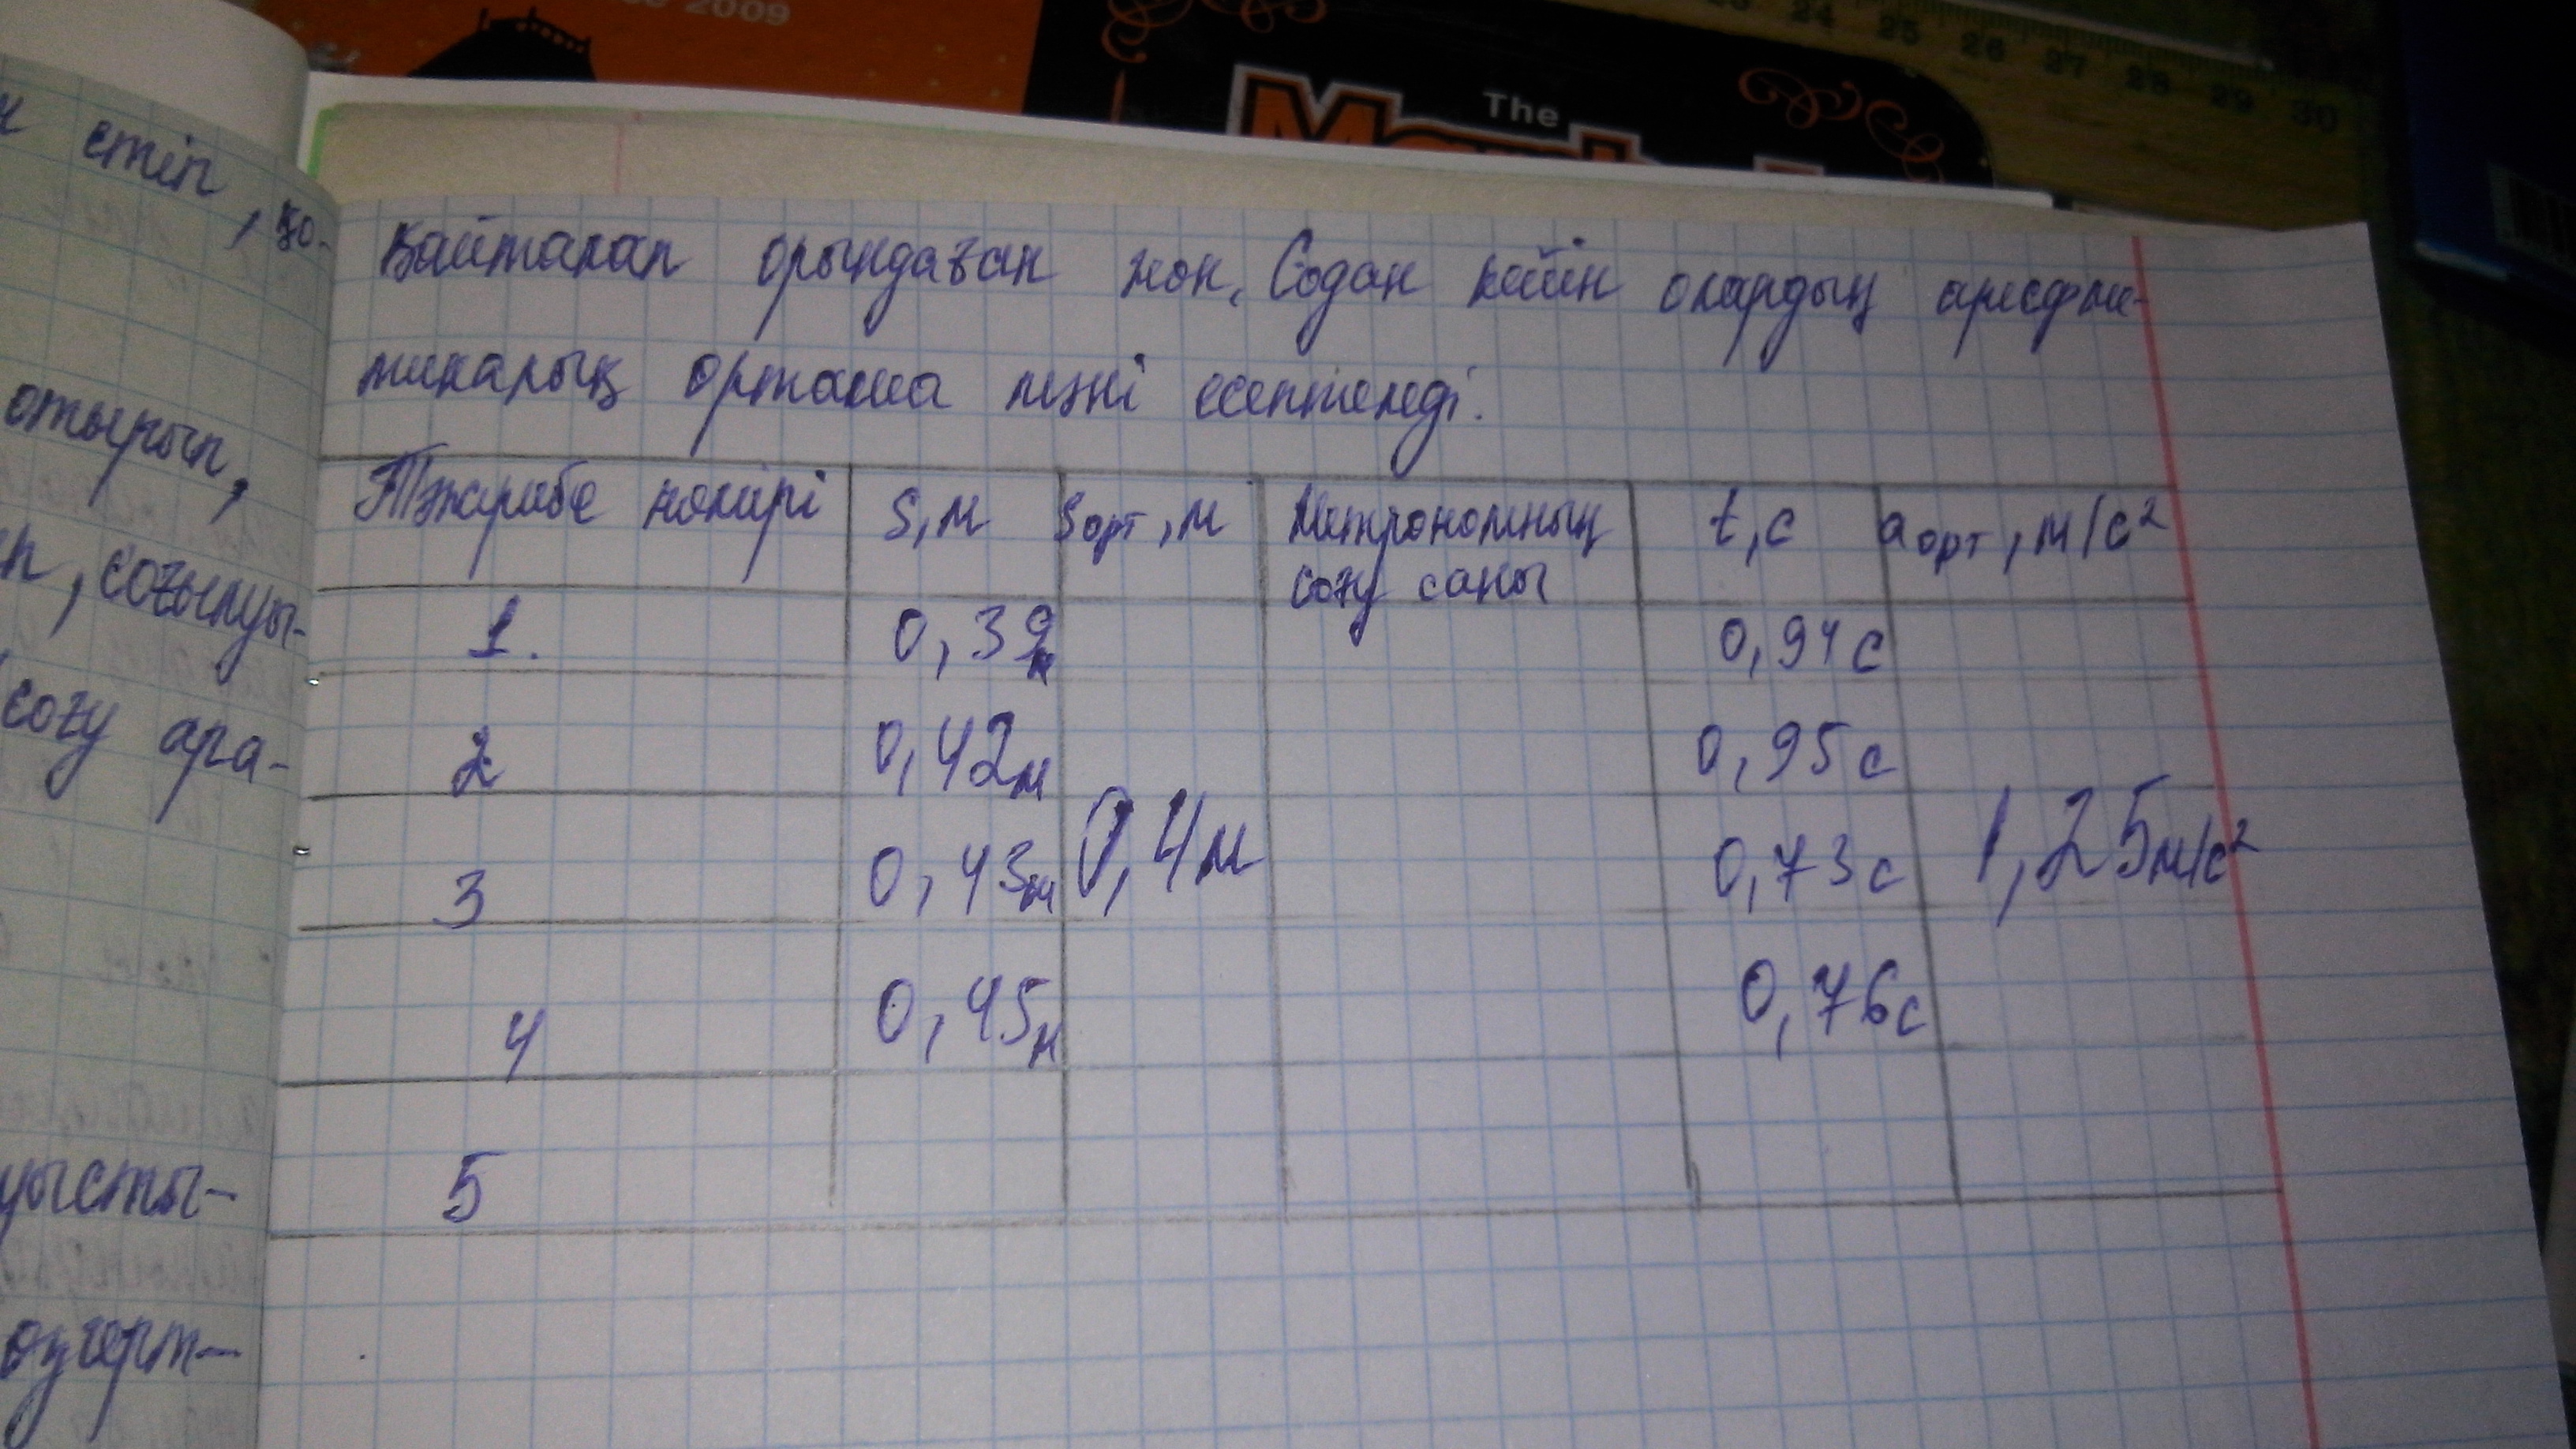 2009
The
23 24 25 26 27 28 29 30
етіп, қо-
отырып,
, соғылуы-
соғу ара-
уысты-
өзгерт-
Қайталап орындаған жөн. Содан кейін олардың арифме-
тикалық орташа мәні есептеледі.
Тәжірибе нөмірі s, м sорт, м Метрономның t, с aорт, м/с²
соғу саны
1. 0,39м 0,94с
2 0,42м 0,95с
3 0,43м 0,4м 0,73с 1,25м/с²
4 0,45м 0,76с
5